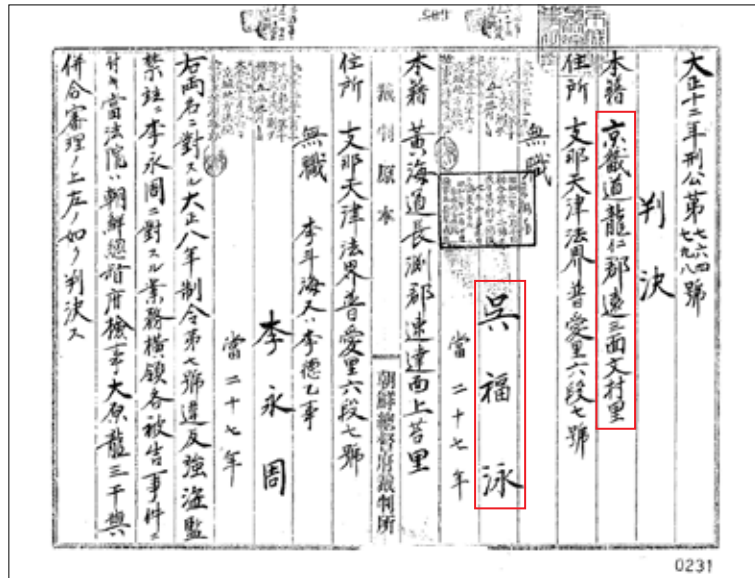 大正十二年刑公第七六四號
七九八
判決
本籍 京畿道龍仁郡遠三面文村里
住所 支那天津法界普愛里六段七號
無職
吳福泳
當二十七年
本籍 黃海道長淵郡速達面上苔里
裁判原本
朝鮮總督府裁判所
住所 支那天津法界普愛里六段七號
無職 李斗海又ハ李德乙事
李永周
當二十七年
右両名ニ對スル大正八年制令第七號違反強盜監
禁竝ニ李永周ニ對スル業務橫領各被告事件ニ
付キ當法院ハ朝鮮總督府檢事大原龍三干與
併合審理ノ上左ノ如ク判決ス
0231